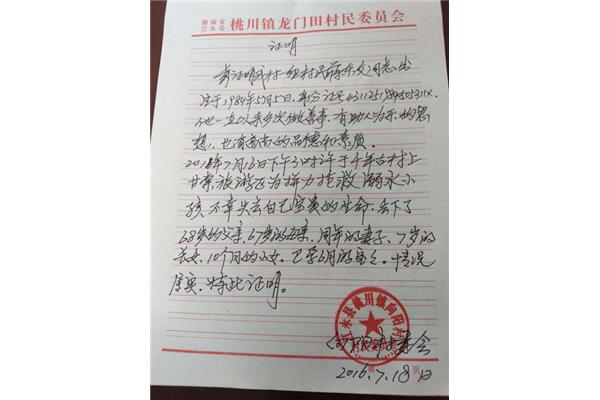 湖南省
江永县 桃川镇龙门田村民委员会
证明
兹证明我村一组村民蒋东文同志出
生于1984年5月5日,身分证号43112519840505311X。
他一直以来多次做善事,有助人为乐的思
想,也有高尚的品德和素质。
2016年7月16日下午3时许于千年古村上
甘棠旅游区为拼力抢救溺水小
孩,不幸失去自己宝贵的生命。丢下了
68岁的父亲,67岁的母亲,同年的妻子,7岁的
长女,10个月的小女,已孕6月的宝宝。情况
属实,特此证明。
江永县桃川镇向阳村
村委会
2016.7.18日
第 页